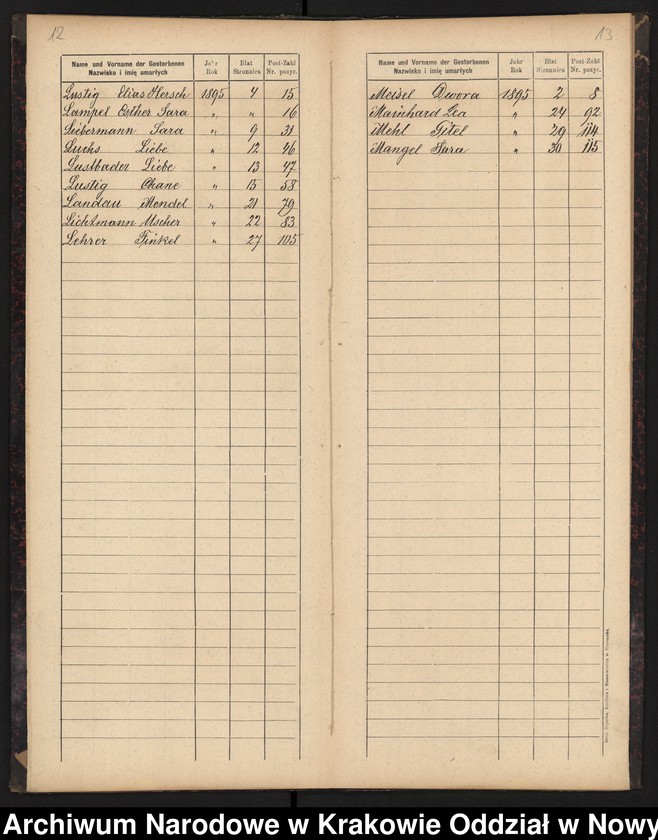 12
Name und Vorname der Gestorbenen Jahr Blat Post-Zahl
Nazwisko i imię umarłych Rok Stronnica Nr. pozyc.
Lustig Elias Hersch 1895 4 15
Lampel Esther Sara " " 16
Liebermann Sara " 9 31
Luchs Liebe " 12 46
Lustbader Liebe " 13 47
Lustig Chane " 15 58
Landau Mendel " 21 79
Lichtmann Uscher " 22 83
Lehrer Finkel " 27 105
13
Name und Vorname der Gestorbenen Jahr Blat Post-Zahl
Nazwisko i imię umarłych Rok Stronnica Nr. pozyc.
Meisel Dwora 1895 2 8
Mainhard Lea " 24 92
Mehl Gitel " 29 114
Mangel Sara " 30 115
Archiwum Narodowe w Krakowie Oddział w Nowy